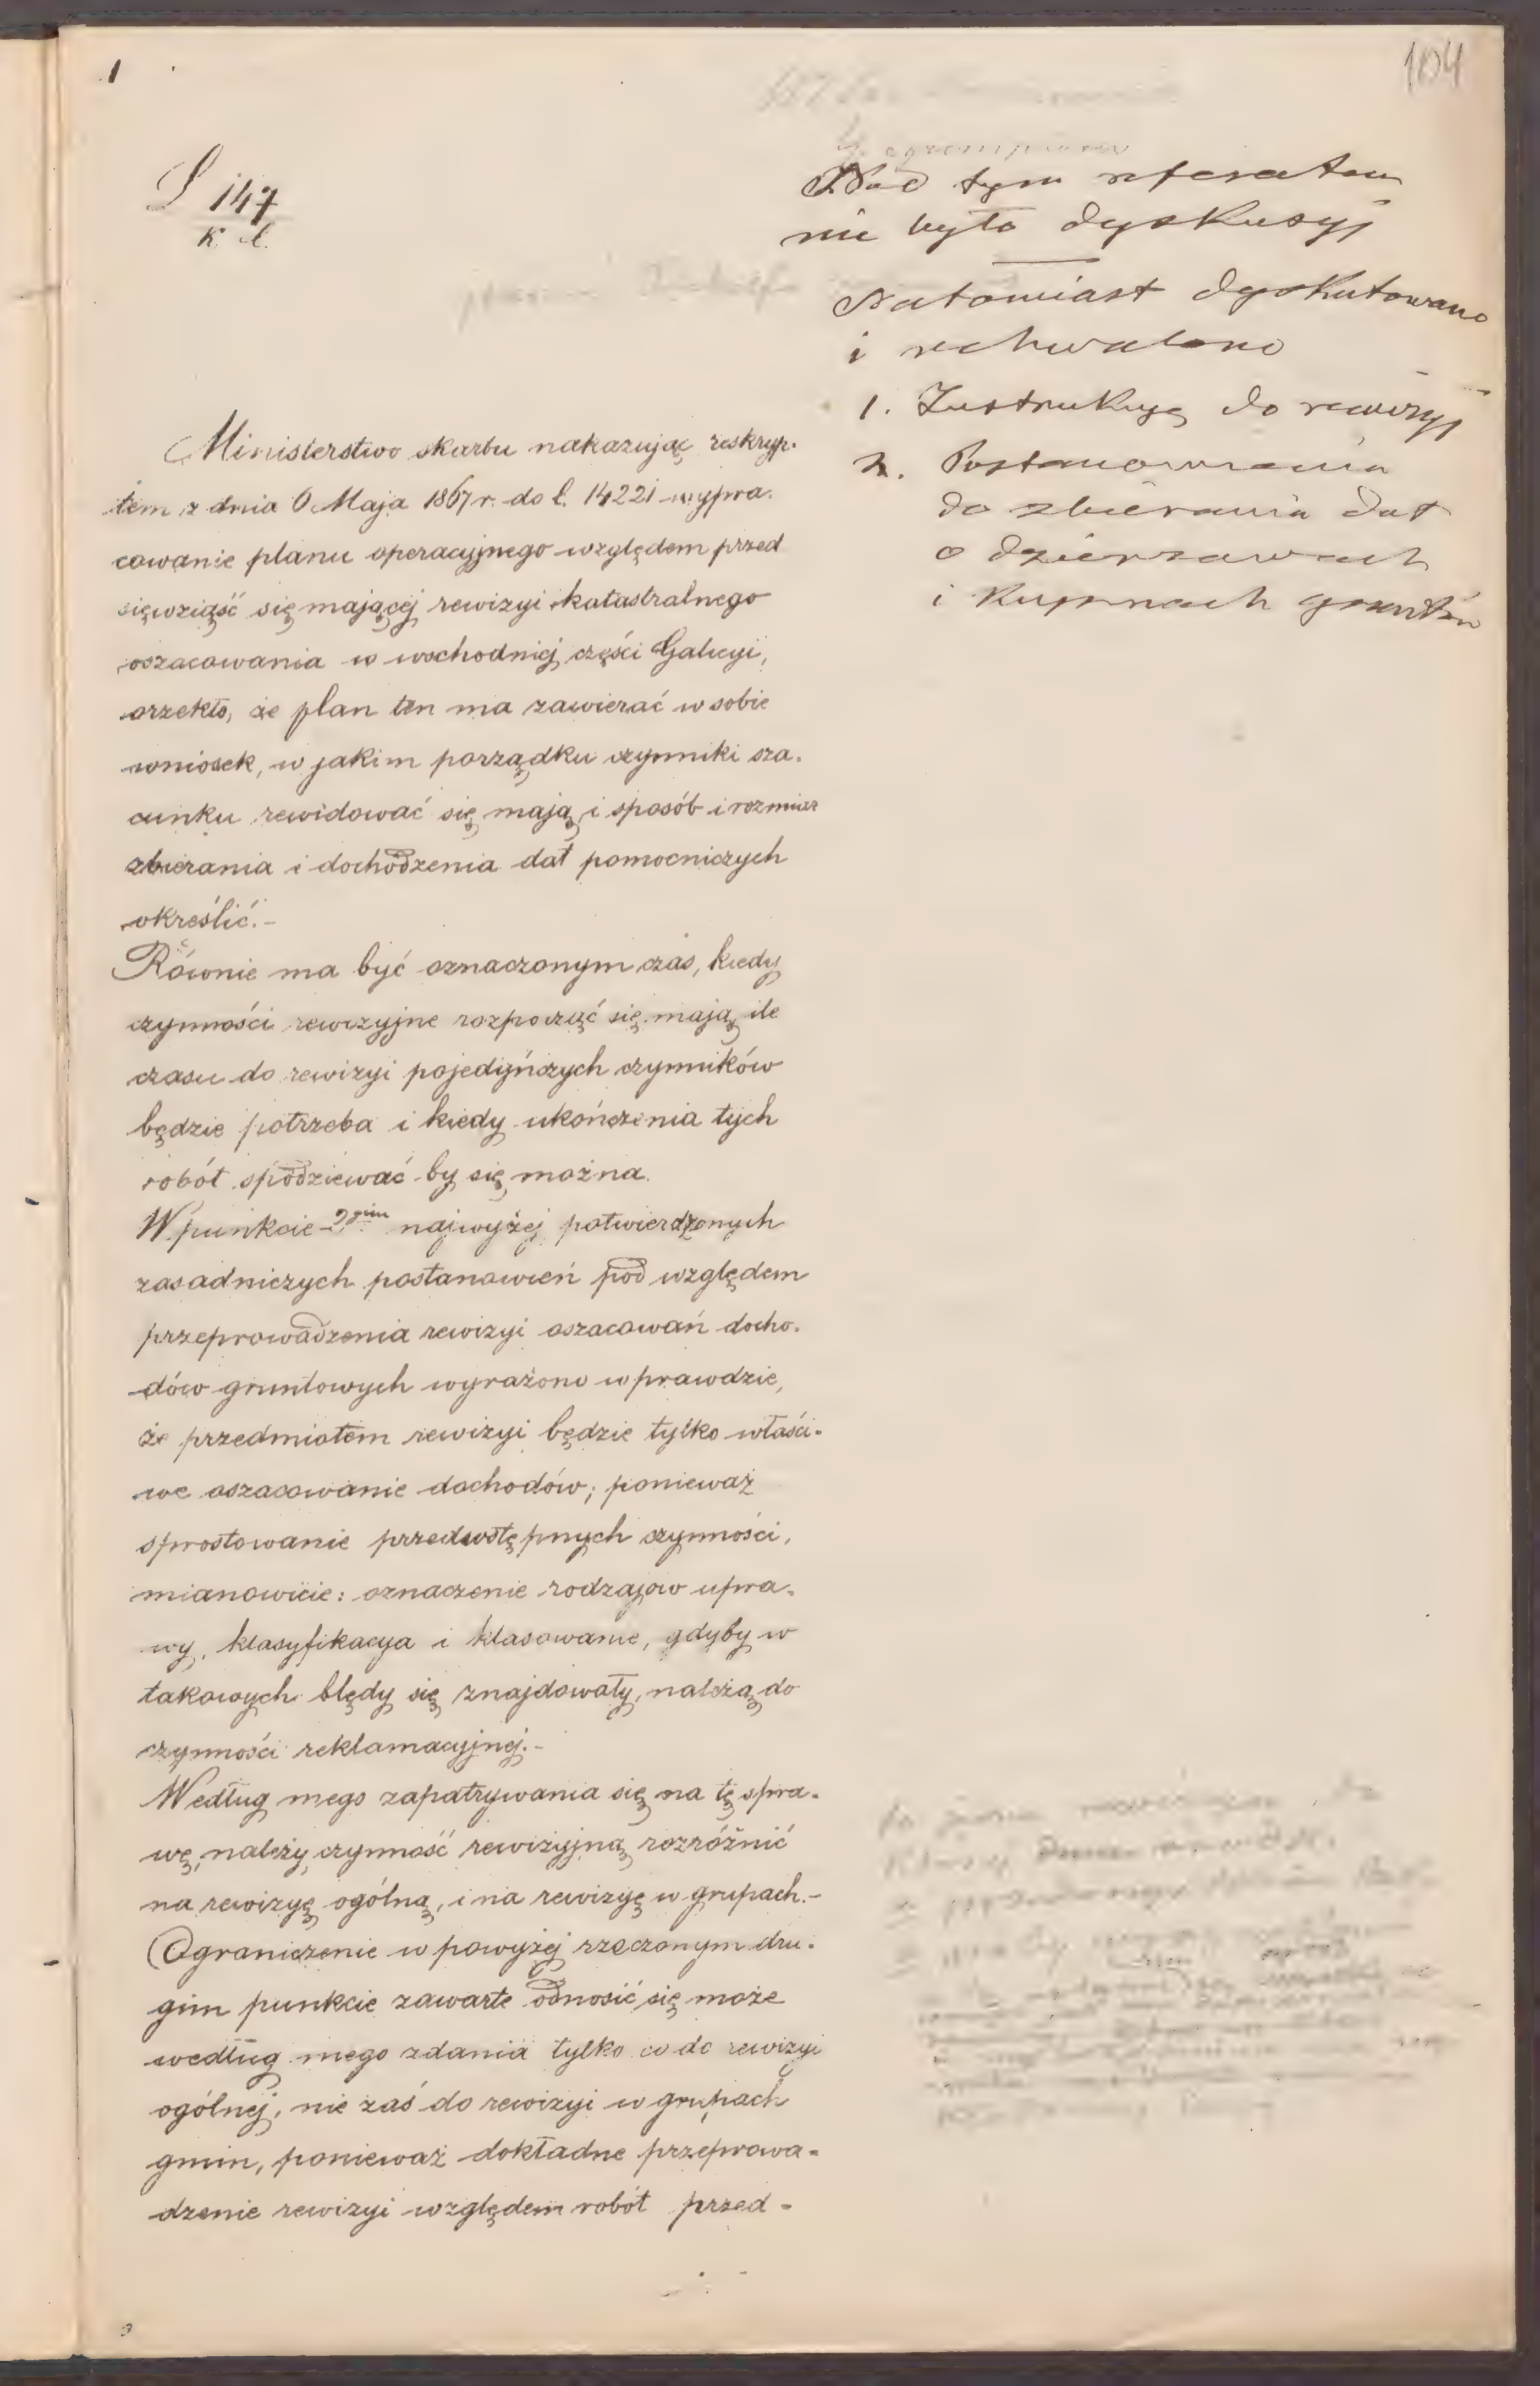 1
104
147
k. l.
Nad tym referatem
nie było dyskusyj
Natomiast dyskutowano
i uchwalono
1. Instrukcyę do rewizyj
2. Postanowienia
do zbierania dat
o dzierzawach
i kupnach gruntów
Ministerstwo skarbu nakazując reskryp-
tem z dnia 6 Maja 1867 r. do l. 14221 wypra-
cowanie planu operacyjnego względem przed
sięwziąść się mającej rewizyi katastralnego
oszacowania w wschodniej części Galicyi,
orzekło, że plan ten ma zawierać w sobie
wniosek, w jakim porządku czynniki sza-
cunku rewidować się mają i sposób i rozmiar
zbierania i dochodzenia dat pomocniczych
określić.-
Równie ma być oznaczonym czas, kiedy
czynności rewizyjne rozpocząć się mają, ile
czasu do rewizyi pojedyńczych czynników
będzie potrzeba i kiedy ukończenia tych
robót spodziewać by się można.
W punkcie 2gim najwyżej potwierdzonych
zasadniczych postanowień pod względem
przeprowadzenia rewizyi oszacowań docho-
dów gruntowych wyrażono wprawdzie,
że przedmiotem rewizyi będzie tylko właści-
we oszacowanie dochodów; ponieważ
sprostowanie przedwstępnych czynności,
mianowicie: oznaczenie rodzajow upra-
wy, klasyfikacya i klasowanie, gdyby w
takowych błędy się znajdowały, należą do
czynności reklamacyjnej.-
Według mego zapatrywania się na tę spra-
wę, należy czynność rewizyjną rozróżnić
na rewizyę ogólną, i na rewizyę w grupach.-
Ograniczenie w powyżej rzeczonym dru-
gim punkcie zawarte odnosić się może
według mego zdania tylko co do rewizyi
ogólnej, nie zaś do rewizyi w grupach
gmin, ponieważ dokładne przeprowa-
dzenie rewizyi względem robót przed-